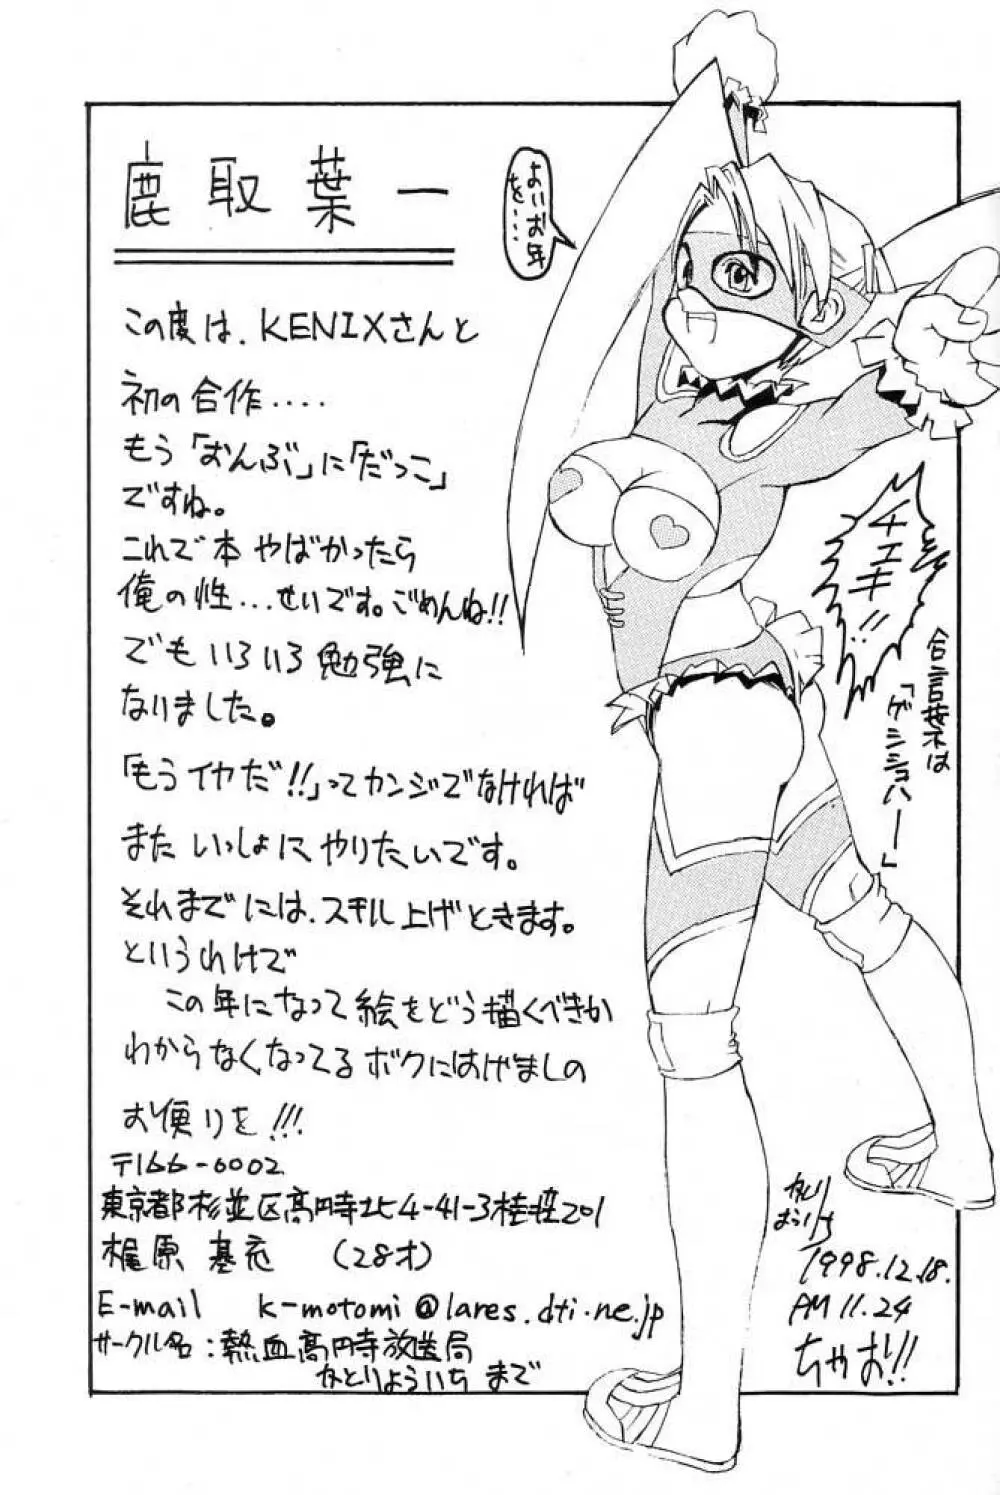 鹿取葉一
この度は、KENIXさんと
初の合作....
もう「おんぶ」に「だっこ」
ですね。
これで本やばかったら
俺の性...せいです。ごめんね!!
でもいろいろ勉強に
なりました。
「もうイヤだ!!」ってカンジでなければ
またいっしょにやりたいです。
それまでには、スキル上げときます。
というわけで
この年になって絵をどう描くべきか
わからなくなってるボクにはげましの
お便りを!!!
〒166-0002
東京都杉並区高円寺北4-41-3桂荘201
梶原 基充 (28才)
E-mail k-motomi@lares.dti.ne.jp
サークル名:熱血高円寺放送局
かとりよういちまで
よいお年
を....
チェキ!!
合言葉は
「ゲシショハー」
かとり
よういち
1998.12.18.
PM 11.24
ちゃお!!